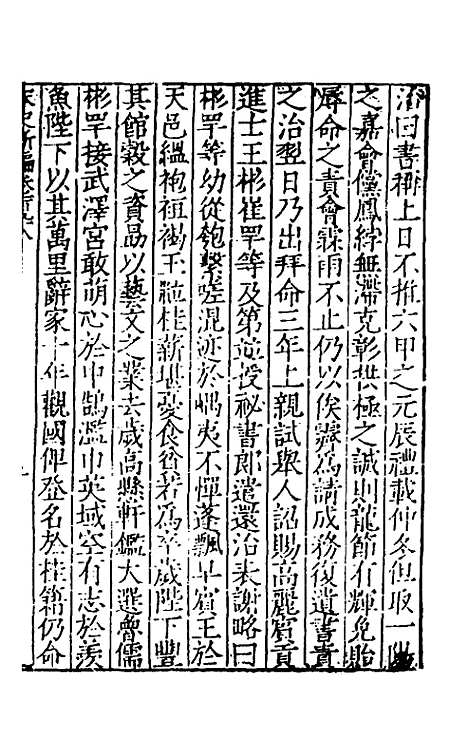 治曰書稱上日不推六甲之元辰禮載仲冬但取一陽
之嘉會儻鳳綍無滯克彰拱極之誠則龍節有輝免貽
辱命之責會霖雨不止仍以俟霽爲請成務復遺書責
之治翌日乃出拜命三年上親試舉人詔賜高麗賓貢
進士王彬崔罕等及第並授祕書郎遣還治表謝略曰
彬罕等幼從匏繫嗟混迹於嵎夷不憚蓬飄早賓王於
天邑縕袍短褐玉粒桂薪堪憂食貧若爲卒歲陛下豐
其館穀之資勗以藝文之業去歲高懸軒鑑大選魯儒
彬罕接武澤宮敢萌心於中鵠濫巾英域空有志於羨
魚陛下以其萬里辭家十年觀國俾登名於桂籍仍命
宋史新編卷